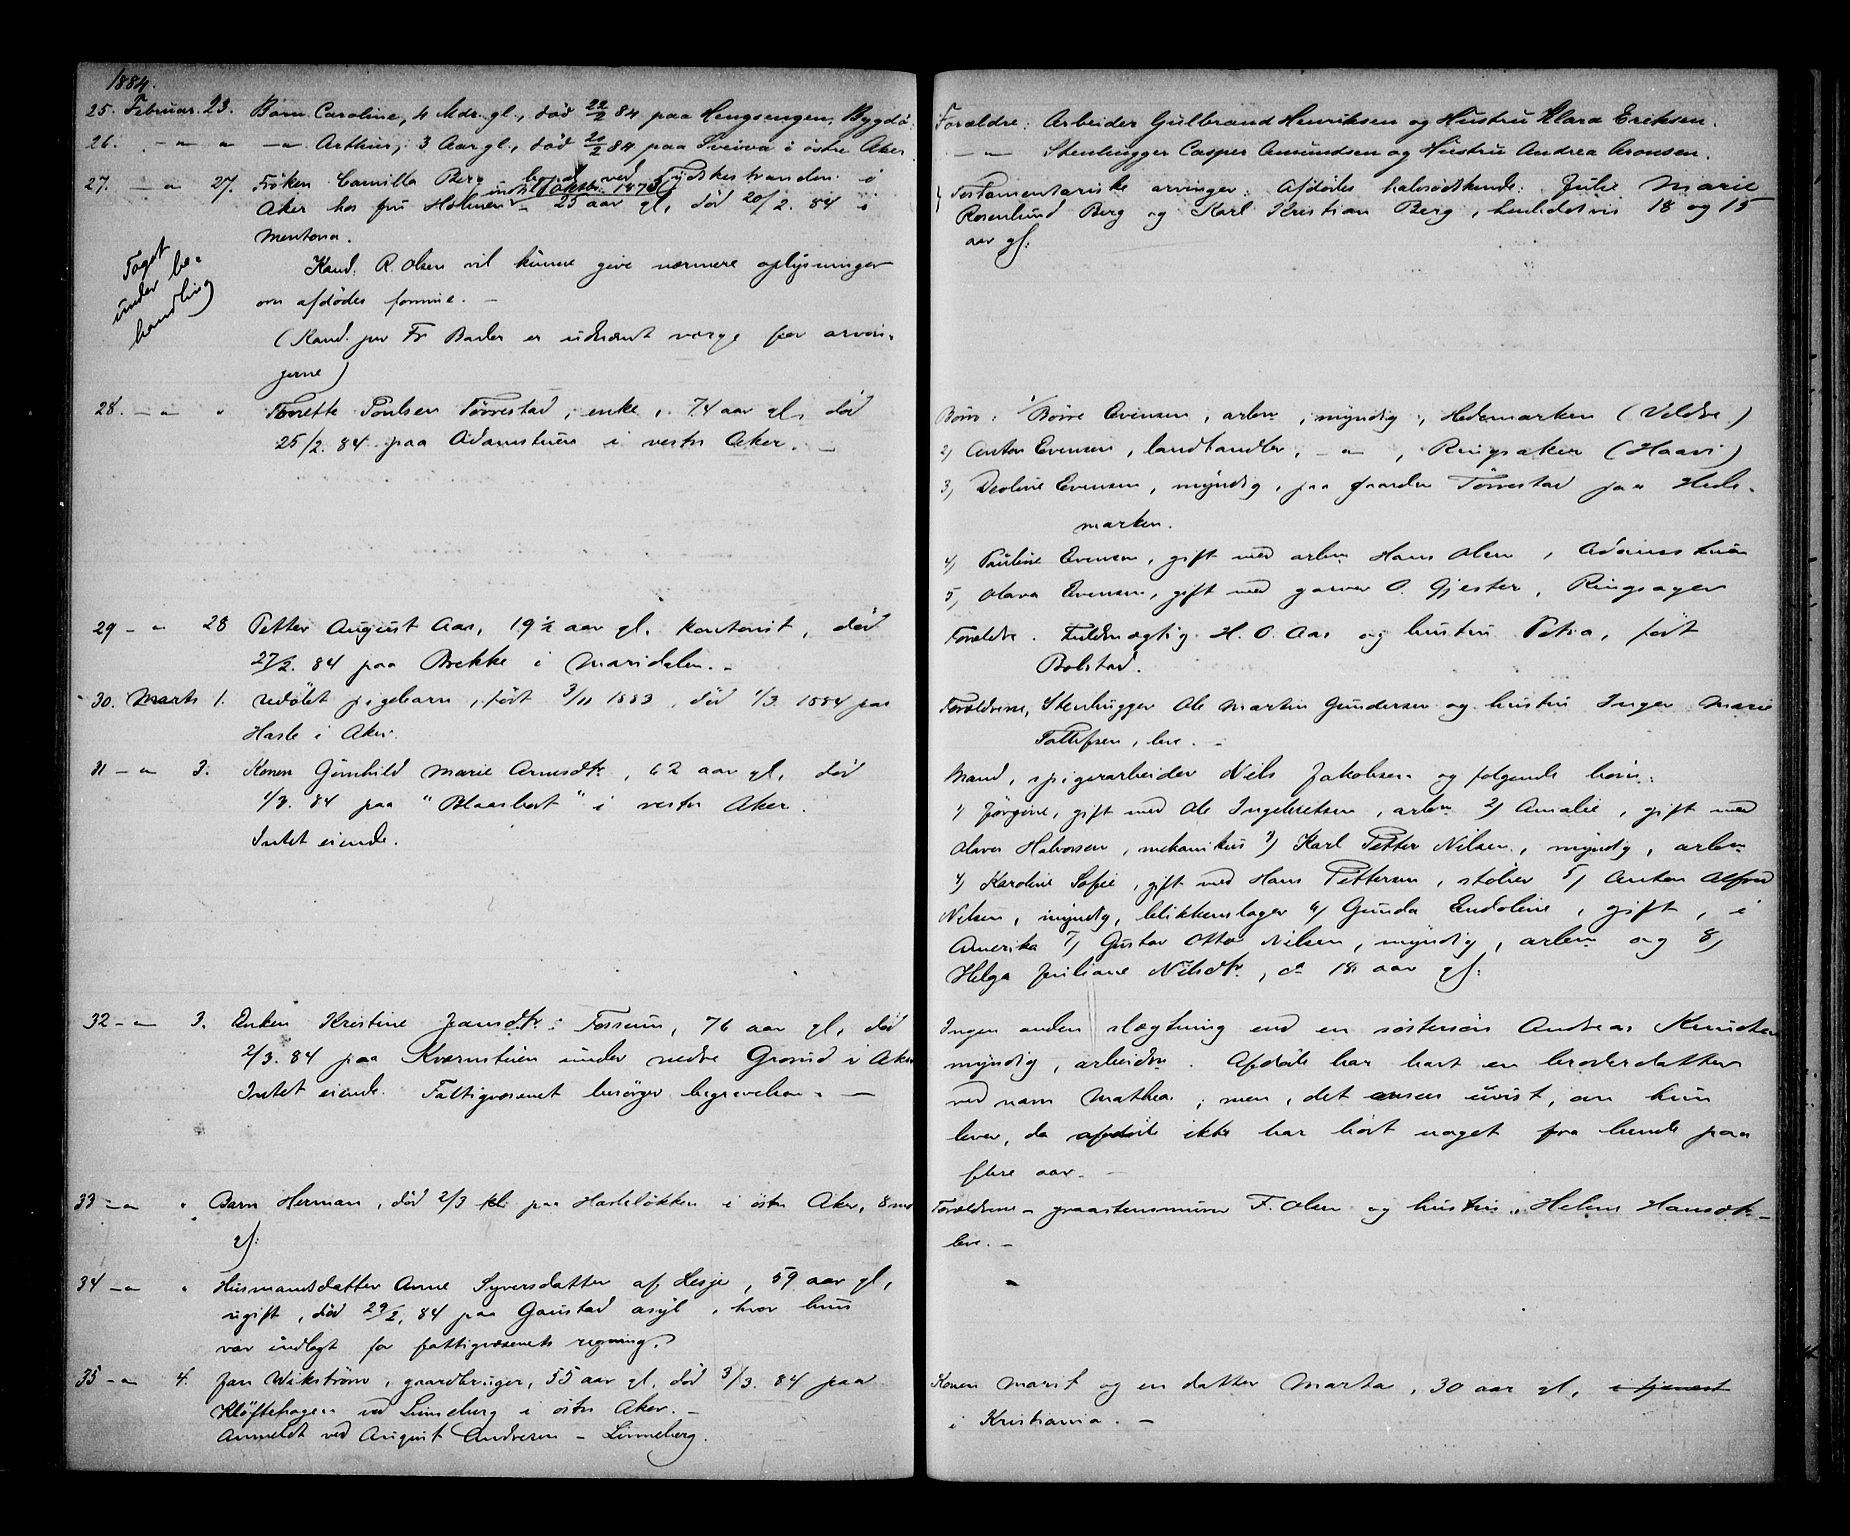 1884.
25. Februar. 23. Barn Caroline, 4 Mdr. gl., död 22/2 84 paa Hengsengen, Bygdö.
26. -"- " -"- Arthur, 3 Aar gl., död 20/2 84 paa Sveiva i östre Aker.
27. -"- 27. Fröken Camilla Berg, boende ved Tydskestranden i
indtil 1 oktbr. 1873
Aker hos fru Holmen - 25 aar gl, död 20/2. 84 i
Mentona.
Taget under be-
handling
Kand. R. Olsen vil kunne give nærmere oplysninger
om afdödes formue. -
(Kand. jur Fr er udnævnt verge for arvin-
gerne)
28. -"- " Torrette Poulsen Törrestad, enke, 74 aar gl, död
25/2. 84 paa Adamstuen i vestre Aker. -
29 -"- 28 Petter August Aas, 19 1/2 aar gl. kontorist, död
27/2. 84 paa Brekke i Maridalen. -
30. Marts 1. Udöbt pigebarn, født 3/11 1883, död 1/3 1884 paa
Hasle i Aker.
31 -"- 3. Konen Gunhild Marie Arnesdtr, 62 aar gl, död
1/3. 84 paa "Blaasbort" i vestre Aker.
Intet eiende.
32 -"- 3. Enken Kristine Jansdtr. Fossum, 76 aar gl, död
2/3. 84 paa Kværnstuen under nedre Grorud i Aker
Intet eiende. Fattigvæsenet besörger begravelsen. -
33 -"- " Barn Herman, död 2/3 paa Hasleløkken i östre Aker, 8 md
gl:
34 -"- " Husmandsdatter Anne Syversdatter af Hesje, 59 aar gl,
ugift, död 29/2. 84 paa Gaustad asyl, hvor hun
var indlagt for fattigvæsenets regning.
35 -"- 4. Jan Wikström, gaardbruger, 55 aar gl, död 3/3. 84 paa
Klöftehagen ved Linneberg i östre Aker. -
Anmeldt ved August Andresen - Linneberg.
Forældre: Arbeider Gulbrand Henriksen og Hustru Klara Eriksen.
-"- Stenhugger Casper Amundsen og Hustru Andrea Aronsen.
Testamentariske arvinger: Afdödes halvsödskende: Julie Marie
Rosenlund Berg og Karl Kristian Berg, henholdsvis 18 og 15
aar gl:
Börn: 1/ Börre Evensen, arbmr, myndig, Hedemarken (Veldre)
2) Anton Evensen, landhandler, -"-, Ringsaker (Haavi)
3) Deoline Evensen, myndig, paa gaarden Törrestad paa Hede-
marken.
4) Pauline Evensen, gift med arbmr Hans Olsen, Adamstuen
5) Olava Evensen, gift med garver O. Gjester, Ringsager
Forældre. Fuldmægtig H. O. Aas og hustru Petra, født
Bolstad.
Forældrene, Stenhugger Ole Martin Gundersen og hustru Inger Marie
Tollefsen, leve. -
Mand, spigerarbeider Nils Jakobsen og følgende börn:
1) Jörgine, gift med Ole Ingebretsen, arbmr 2) Amalie, gift med
Olaves Halvorsen, mekanikus 3) Karl Petter Nilsen, myndig, arbmr
4) Karoline Sofie, gift med Hans Pettersen, stöber 5) Anton Alfred
Nilsen, myndig, blikkenslager 6) Gunda Endoline, gift, i
Amerika 7) Gustav Otto Nilsen, myndig, arbmr og 8)
Helga Juliane Nilsdtr., ca 18 aar gl:
Ingen anden slægtning end en söstersön Andreas Knudsen
myndig, arbeider. Afdöde har havt en broderdatter
ved navn Mathea, men, det ansees uvist, om hun
lever, da afdöde ikke har hört noget fra hende paa
flere aar. -
Forældrene - graastensmurer F. Olsen og hustru, Helene Hansdtr -
leve. -
Konen Marit og en datter Marta, 30 aar gl, i tjeneste
i Kristiania. -